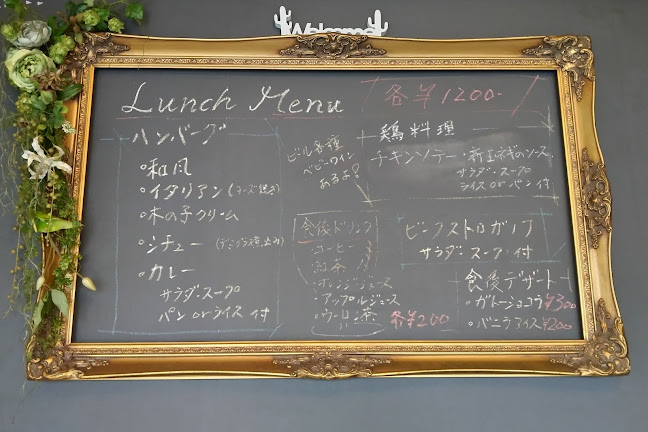 Welcome
Lunch Menu
各¥1200-
ハンバーグ
・和風
・イタリアン(チーズ焼き)
・木の子クリーム
・シチュー(デミグラス煮込み)
・カレー
サラダ・スープ
パン orライス 付
ビール各種
ベビーワイン
あるよ?
食後ドリンク
・コーヒー
・紅茶
・オレンジジュース
・アップルジュース
・ウーロン茶
各¥200
鶏料理
チキンソテー・新玉ネギのソース
サラダ・スープ
ライスorパン 付
ビーフストロガノフ
サラダ スープ 付
食後デザート
・ガトーショコラ ¥300
・バニラアイス ¥200